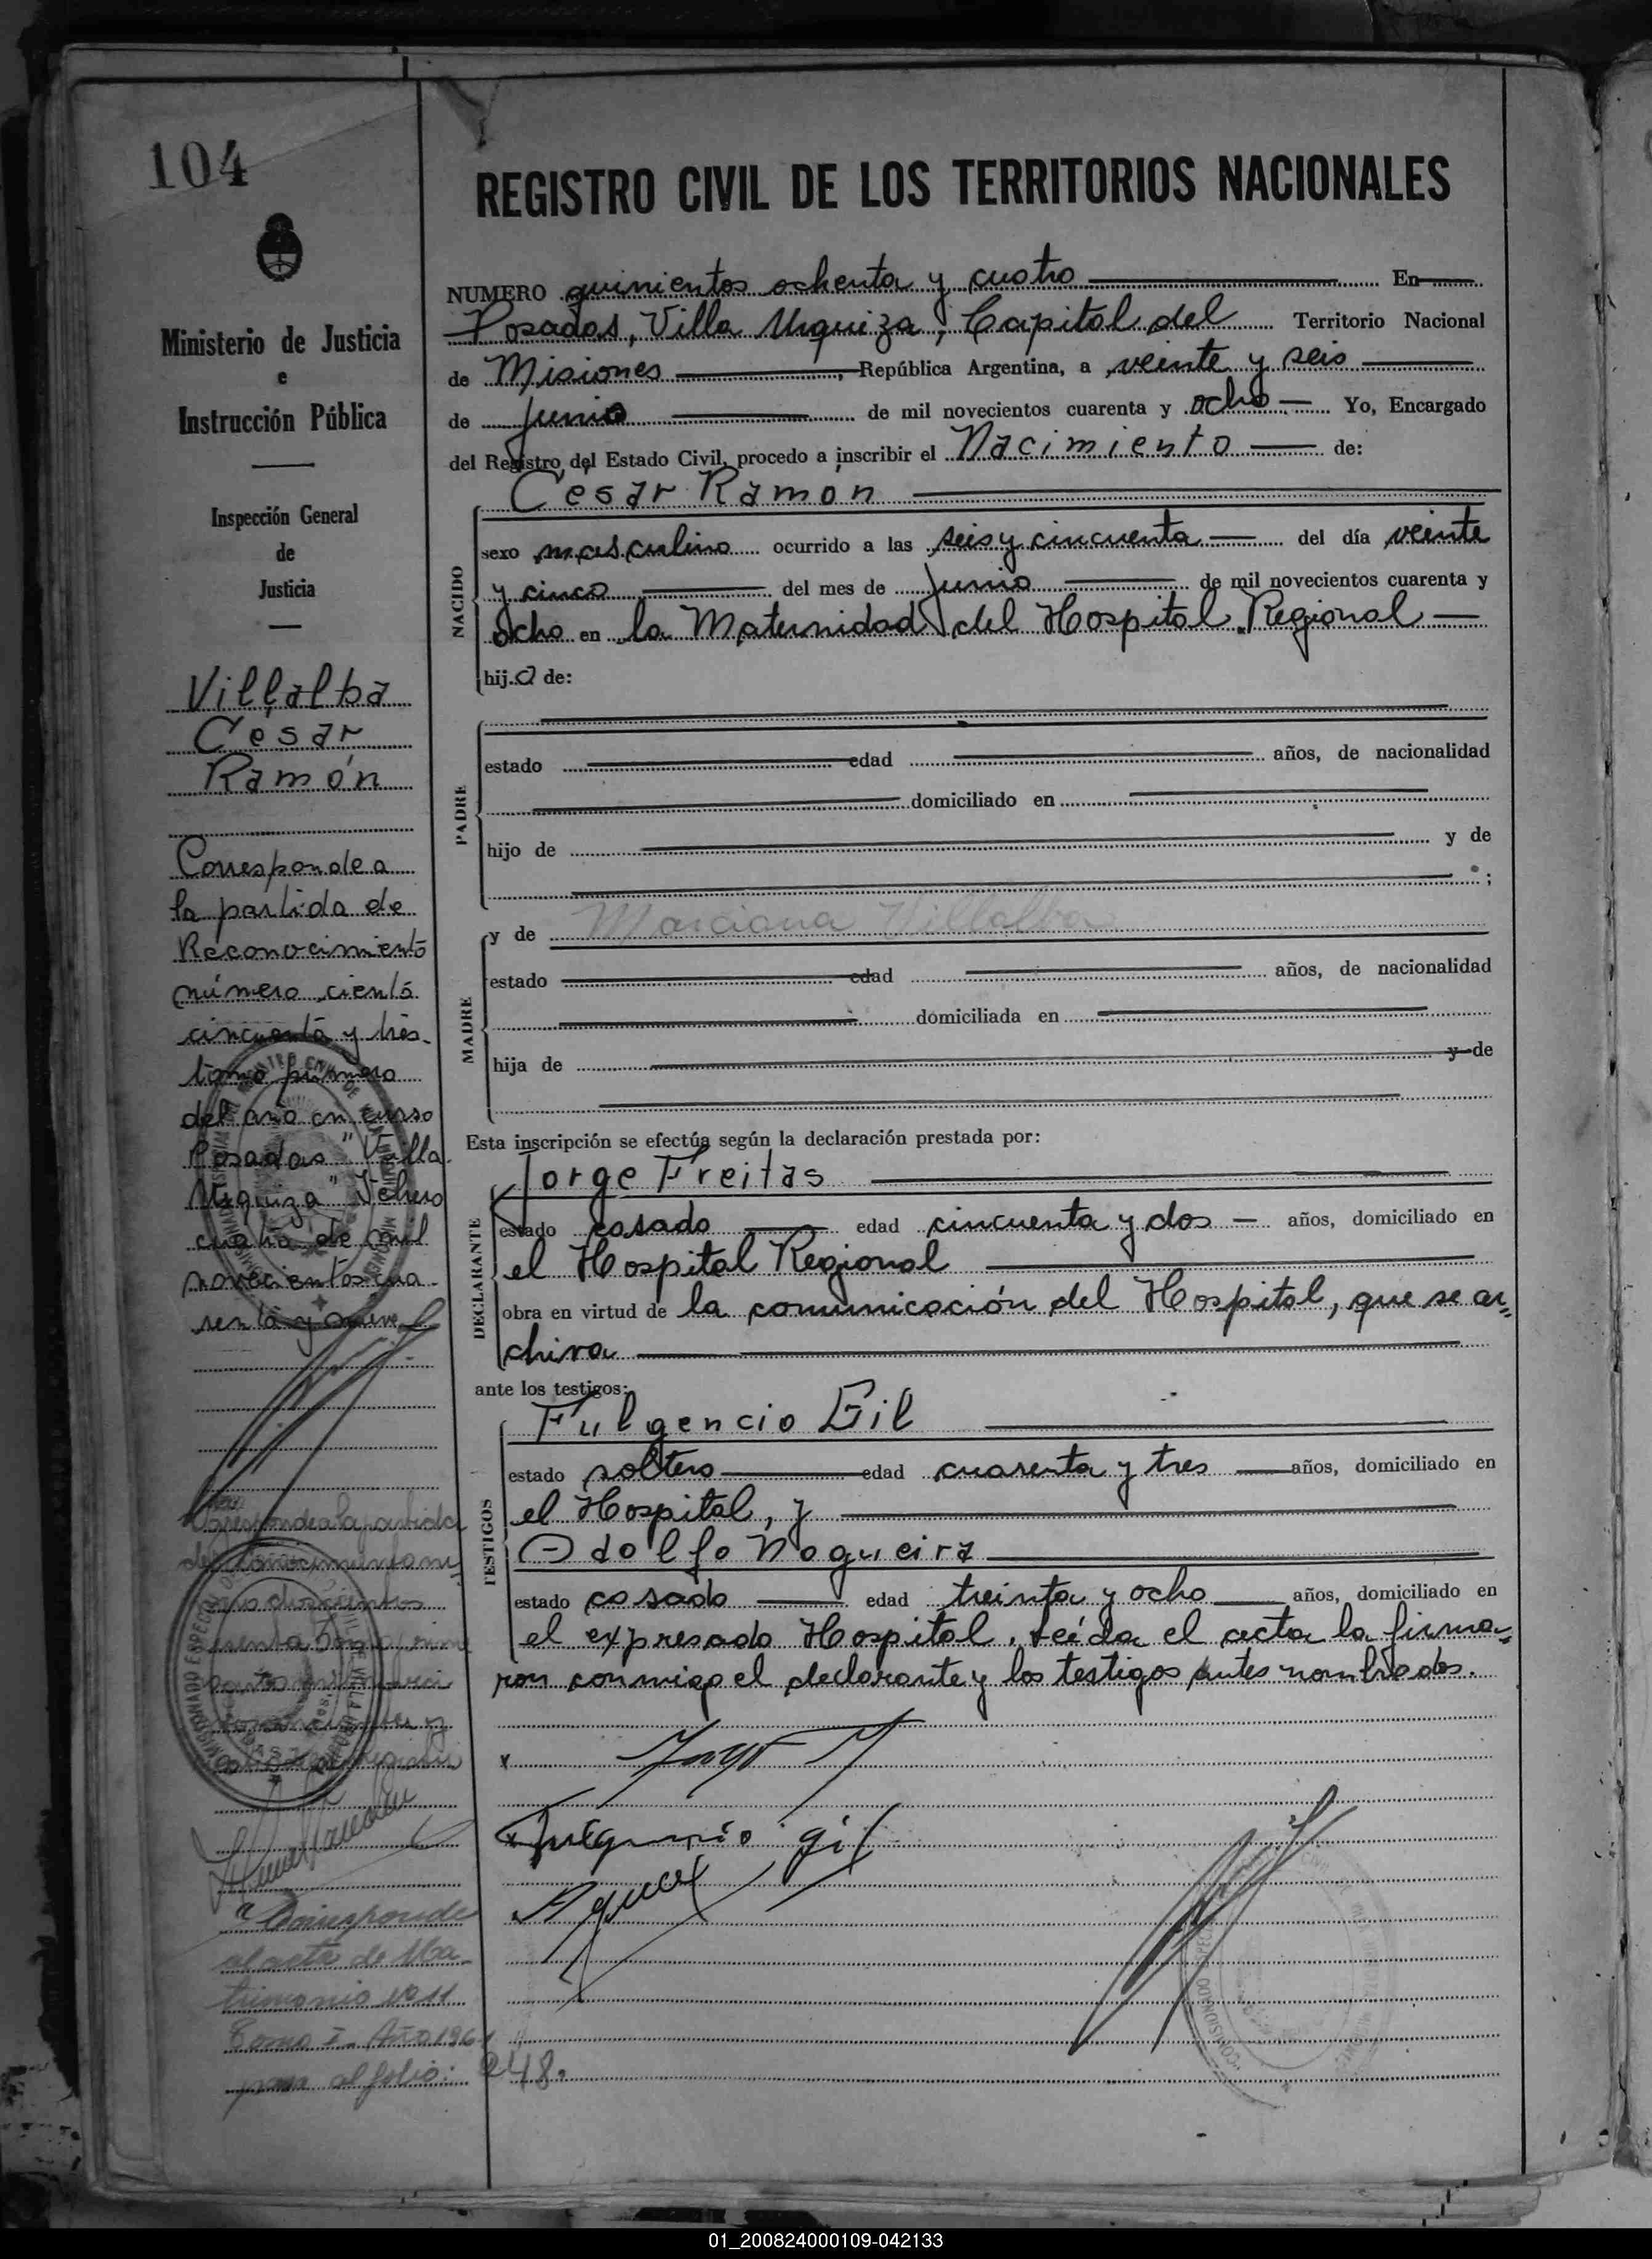 104
Ministerio de Justicia
e
Instrucción Pública
Inspección General
de
Justicia
Villalba
César
Ramón
Corresponde a
la partida de
Reconocimiento
número ciento
cincuenta y tres
tomo primero
del año en curso
Posadas "Villa
Urquiza"
de mil
novecientos cua-
renta y nueve
Corresponde a la partida
Corresponde
al acta de Ma-
trimonio Nº 11
Tomo I. Año 196
pasa al folio: 248.
REGISTRO CIVIL DE LOS TERRITORIOS NACIONALES
NUMERO quinientos ochenta y cuatro En
Posadas, Villa Urquiza, Capital del Territorio Nacional
de Misiones, República Argentina, a veinte y seis
de Junio de mil novecientos cuarenta y ocho Yo, Encargado
del Registro del Estado Civil, procedo a inscribir el Nacimiento de:
César Ramón
NACIDO
sexo masculino ocurrido a las seis y cincuenta del día veinte
y cinco del mes de Junio de mil novecientos cuarenta y
ocho en la Maternidad del Hospital Regional
hijo de:
PADRE
estado edad años, de nacionalidad
domiciliado en
hijo de y de
;
MADRE
y de Marciana Villalba
estado edad años, de nacionalidad
domiciliada en
hija de y de
Esta inscripción se efectúa según la declaración prestada por:
DECLARANTE
Jorge Freitas
estado casado edad cincuenta y dos años, domiciliado en
el Hospital Regional
obra en virtud de la comunicación del Hospital, que se ar=
chiva
ante los testigos:
TESTIGOS
Fulgencio Gil
estado soltero edad cuarenta y tres años, domiciliado en
el Hospital, y
Adolfo Nogueira
estado casado edad treinta y ocho años, domiciliado en
el expresado Hospital. Leída el acta la firma=
ron conmigo el declarante y los testigos antes nombrados.
Fulgencio gil
01_200824000109-042133